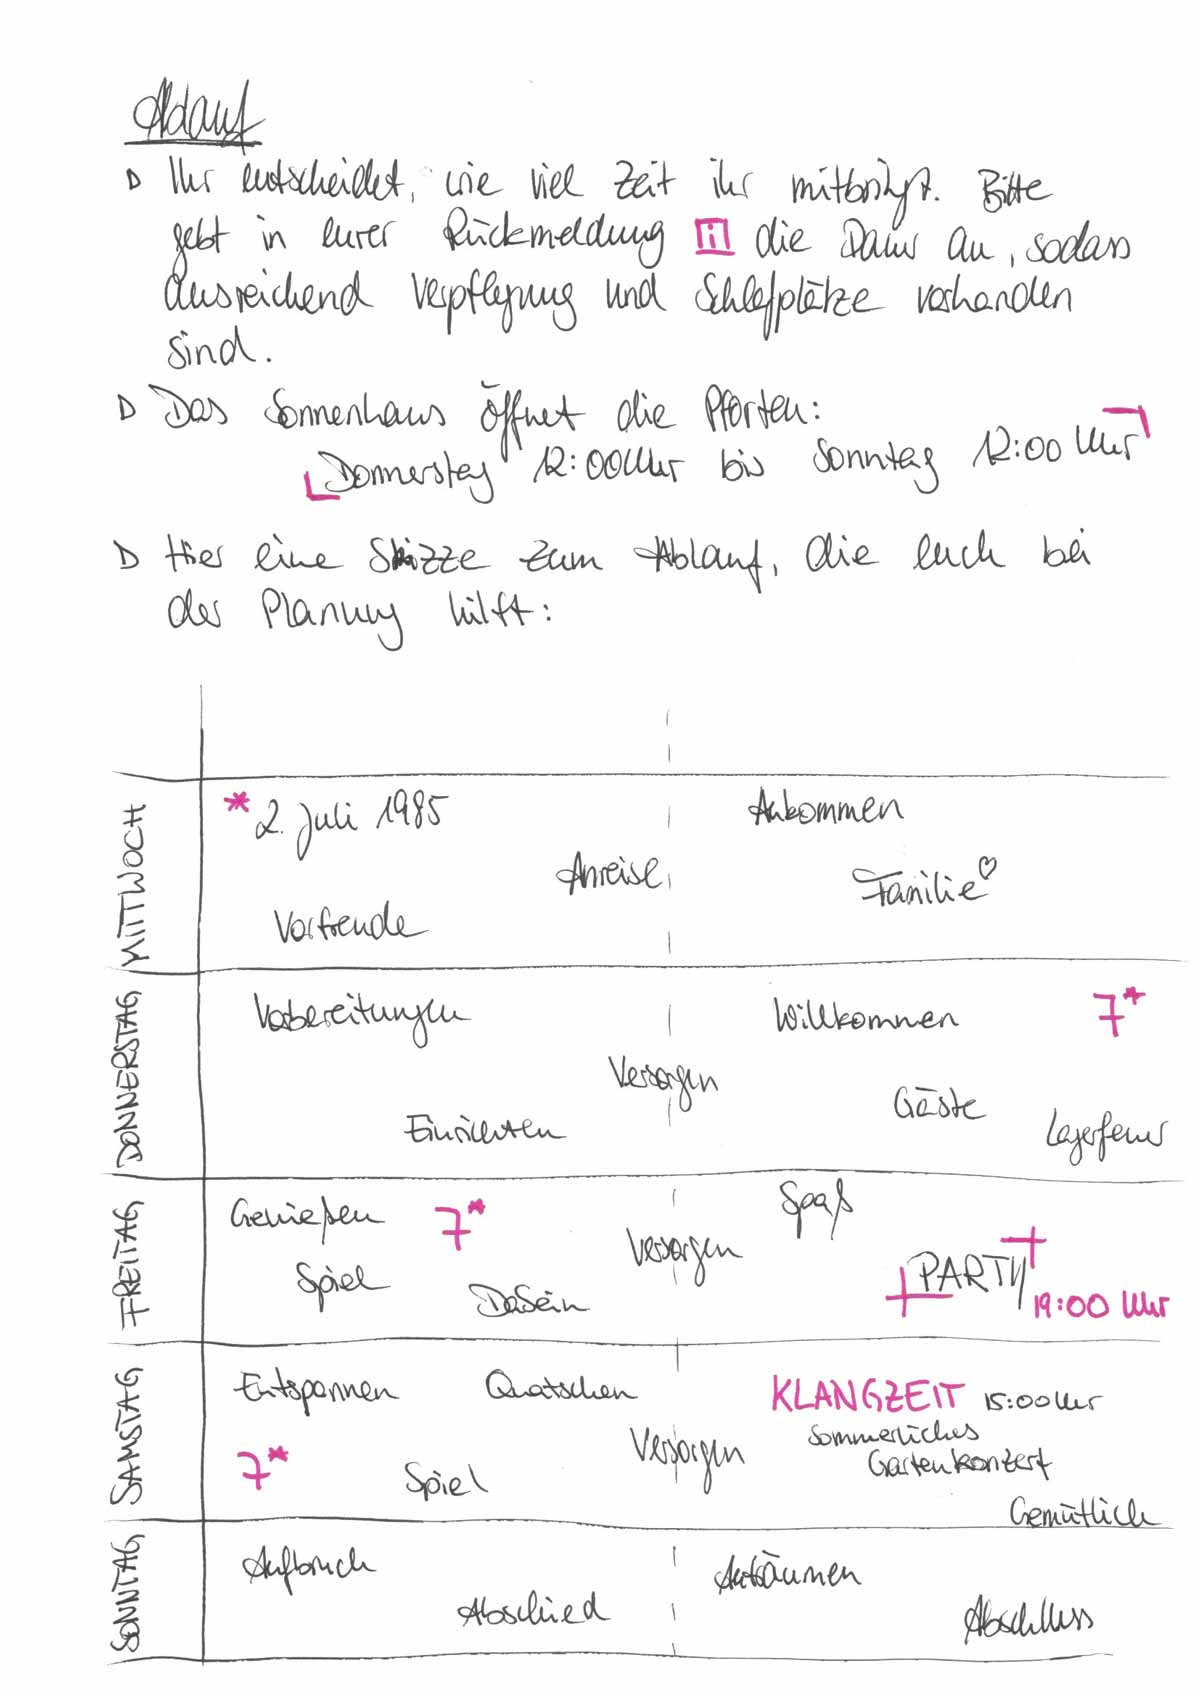 Ablauf
▷ Ihr entscheidet, wie viel Zeit ihr mitbringt. Bitte
gebt in eurer Rückmeldung [i] die Dauer an, sodass
ausreichend Verpflegung und Schlafplätze vorhanden
sind.
▷ Das Sonnenhaus öffnet die Pforten:
Donnerstag 12:00 Uhr bis Sonntag 12:00 Uhr
▷ Hier eine Skizze zum Ablauf, die euch bei
der Planung hilft:
MITTWOCH
* 2. Juli 1985
Ankommen
Anreise
Familie ♡
Vorfreude
DONNERSTAG
Vorbereitungen
Willkommen
7*
Versorgen
Gäste
Einrichten
Lagerfeuer
FREITAG
Genießen
7*
Spaß
Versorgen
Spiel
DaSein
PARTY
19:00 Uhr
SAMSTAG
Entspannen
Quatschen
KLANGZEIT 15:00 Uhr
Sommerliches
Gartenkonzert
Versorgen
7*
Spiel
Gemütlich
SONNTAG
Aufbruch
Aufräumen
Abschied
Abschluss